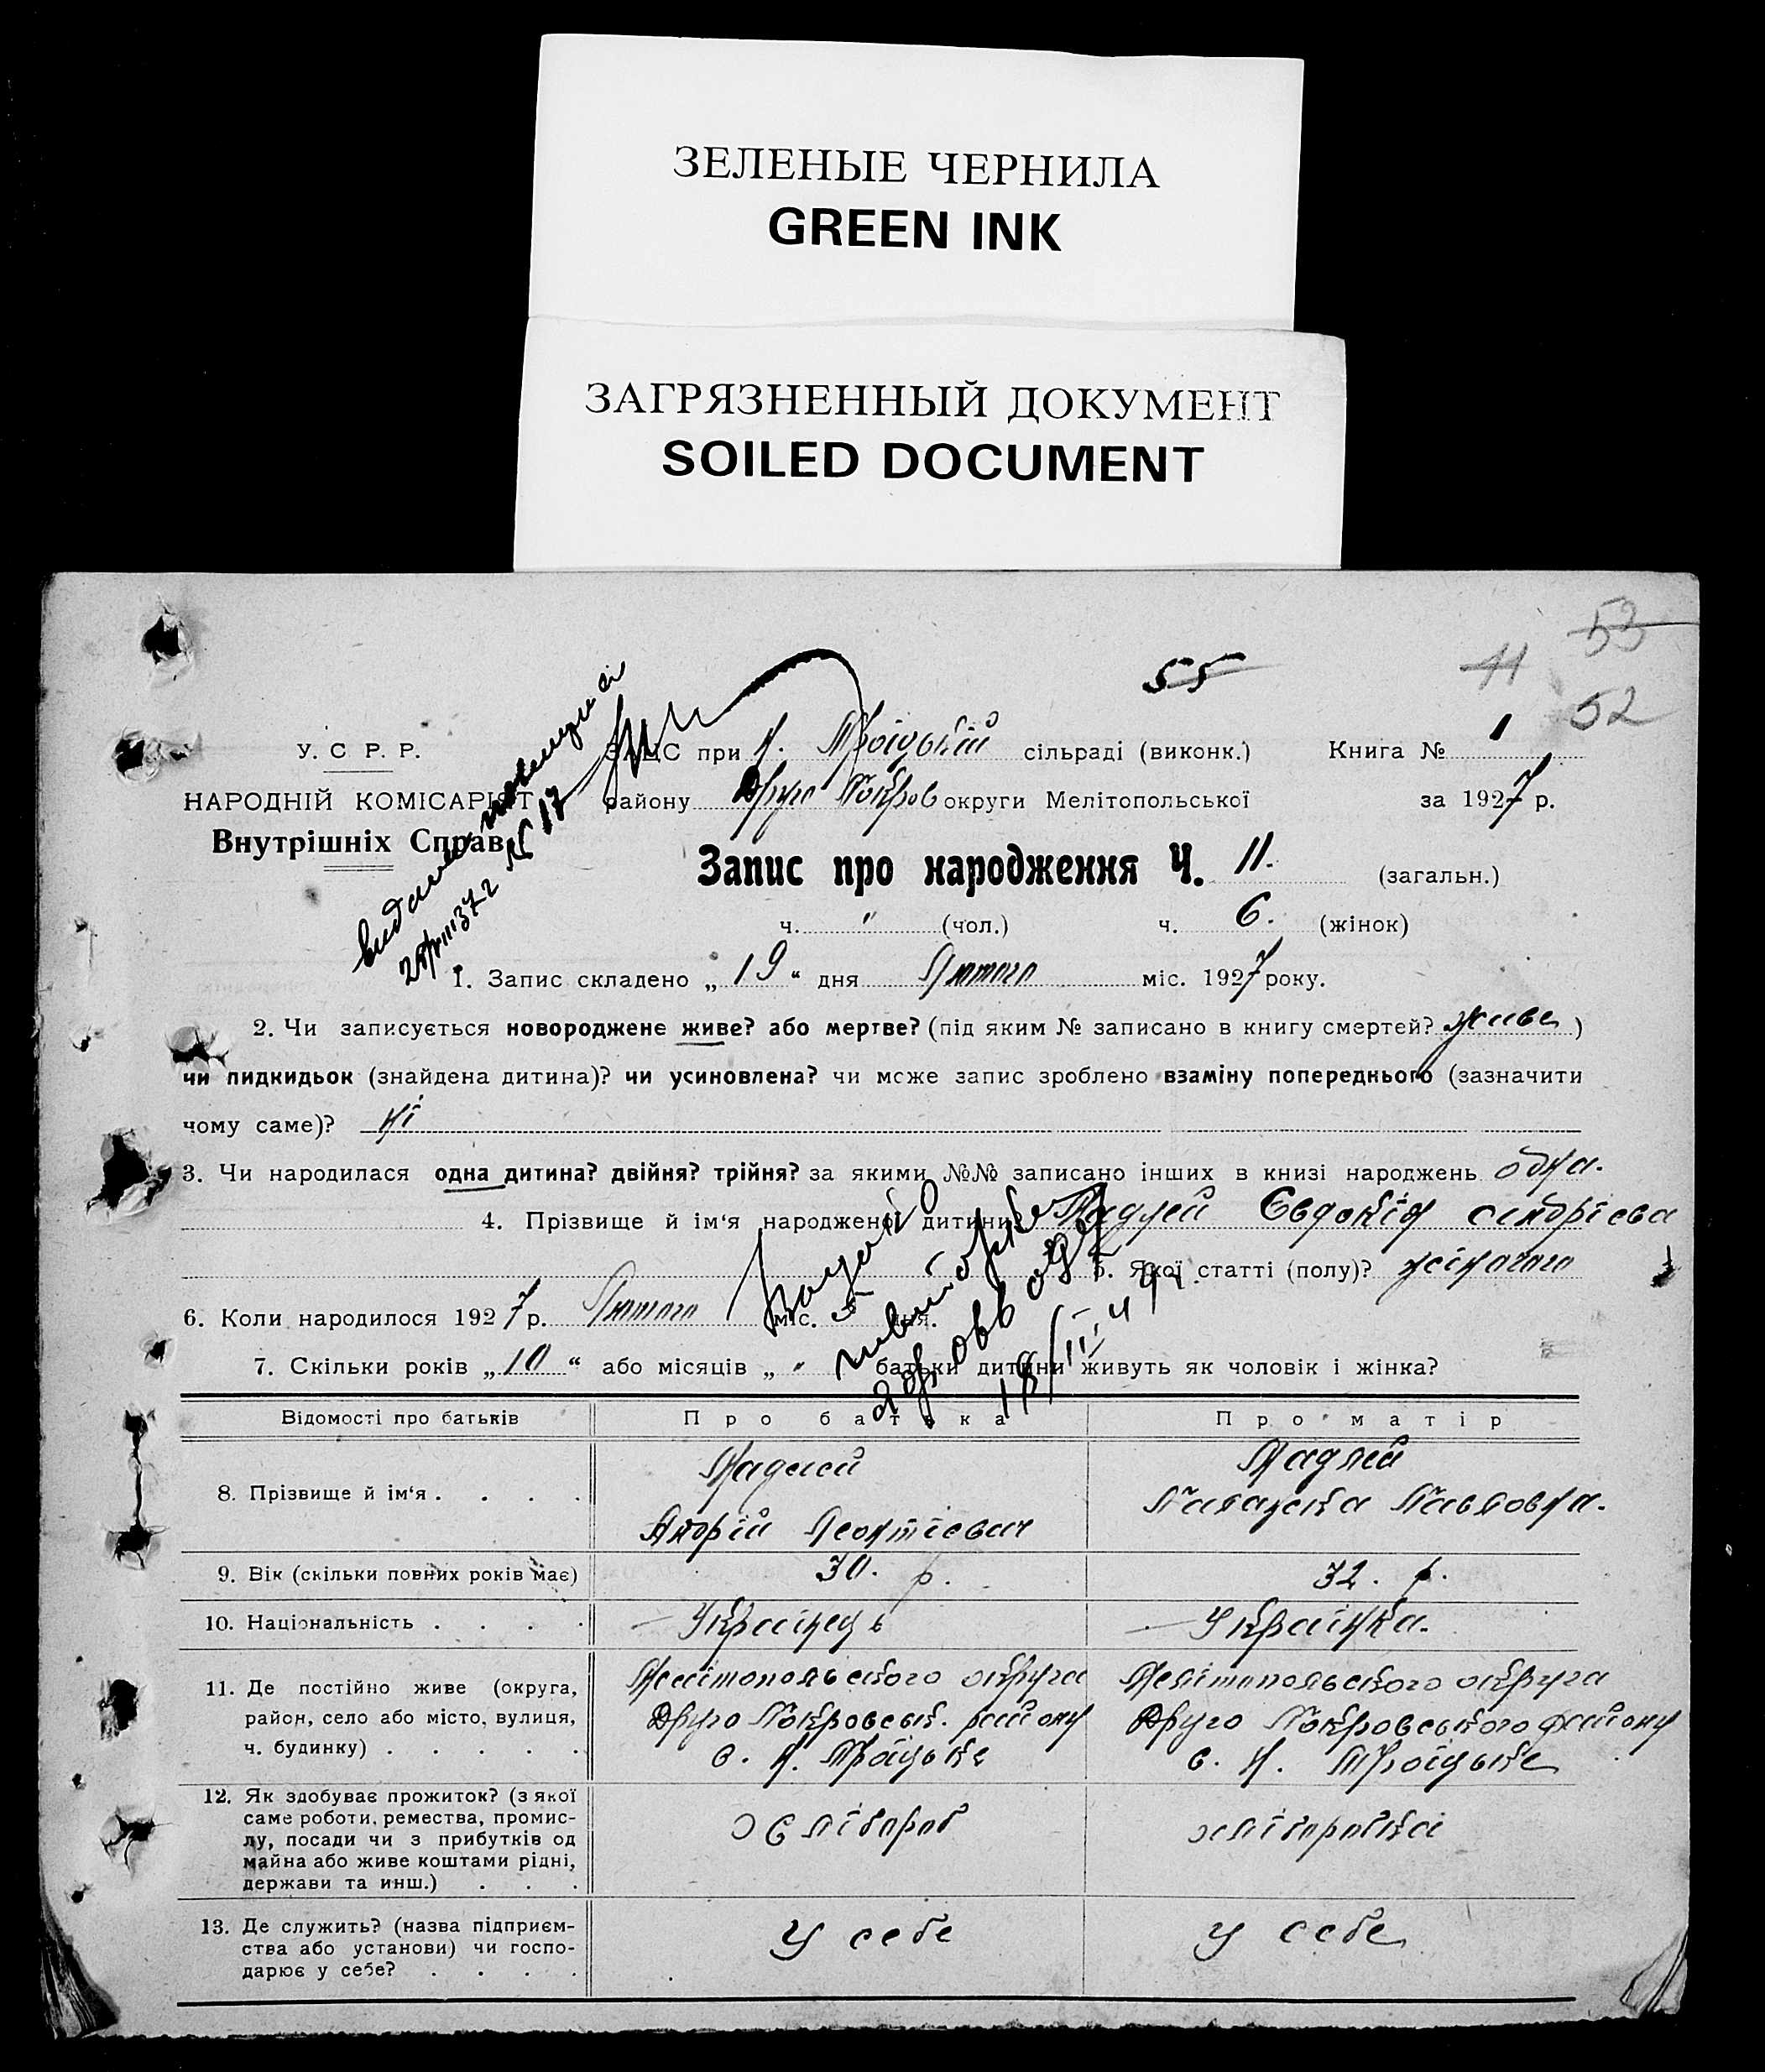 ЗЕЛЕНЫЕ ЧЕРНИЛА
GREEN INK
ЗАГРЯЗНЕННЫЙ ДОКУМЕНТ
SOILED DOCUMENT
53
55 11
52
У. С Р. Р.
НАРОДНІЙ КОМІСАРІЯТ
Внутрішніх Справ
№ 17
ЗАЦС при Н. Троіцькій сільраді (виконк.) Книга № 1
району Друго Покров округи Мелітопольської за 1927 р.
Запис про народження Ч. 11. (загальн.)
ч. " (чол.) ч. 6. (жінок)
1. Запис складено „ 19 “ дня Лютого міс. 1927 року.
2. Чи записується новороджене живе? або мертве? (під яким № записано в книгу смертей? живе )
чи пидкидьок (знайдена дитина)? чи усиновлена? чи може запис зроблено взаміну попереднього (зазначити
чому саме)? ні
3. Чи народилася одна дитина? двійня? трійня? за якими №№ записано інших в книзі народжень одна.
4. Прізвище й ім‘я народженої дитини? Євдокія Андрієва
5. Якої статті (полу)? жіночого
6. Коли народилося 1927 р. Лютого міс. 5 дня.
7. Скільки років „ 10 “ або місяців „ " батьки дитини живуть як чоловік і жінка?
Відомості про батьків Про батька Про матір
8. Прізвище й ім‘я . . . .
Андрій Леонтієвич Павловна.
9. Вік (скільки повних років має) 30. р. 32. р.
10. Національність . . . . Українець Українка.
11. Де постійно живе (округа, Мелітопольського округа Мелітопольського округа
район, село або місто, вулиця, Друго Покровськ. району Друго Покровського району
ч. будинку) . . . . . с. Н. Троіцьке с. Н. Троіцьке
12. Як здобуває прожиток? (з якої
саме роботи, ремества, промис- хлібороб хліборобка
лу, посади чи з прибутків од
майна або живе коштами рідні,
держави та инш.) . . .
13. Де служить? (назва підприєм- у себе у себе
ства або установи) чи госпо-
дарює у себе? . . . .